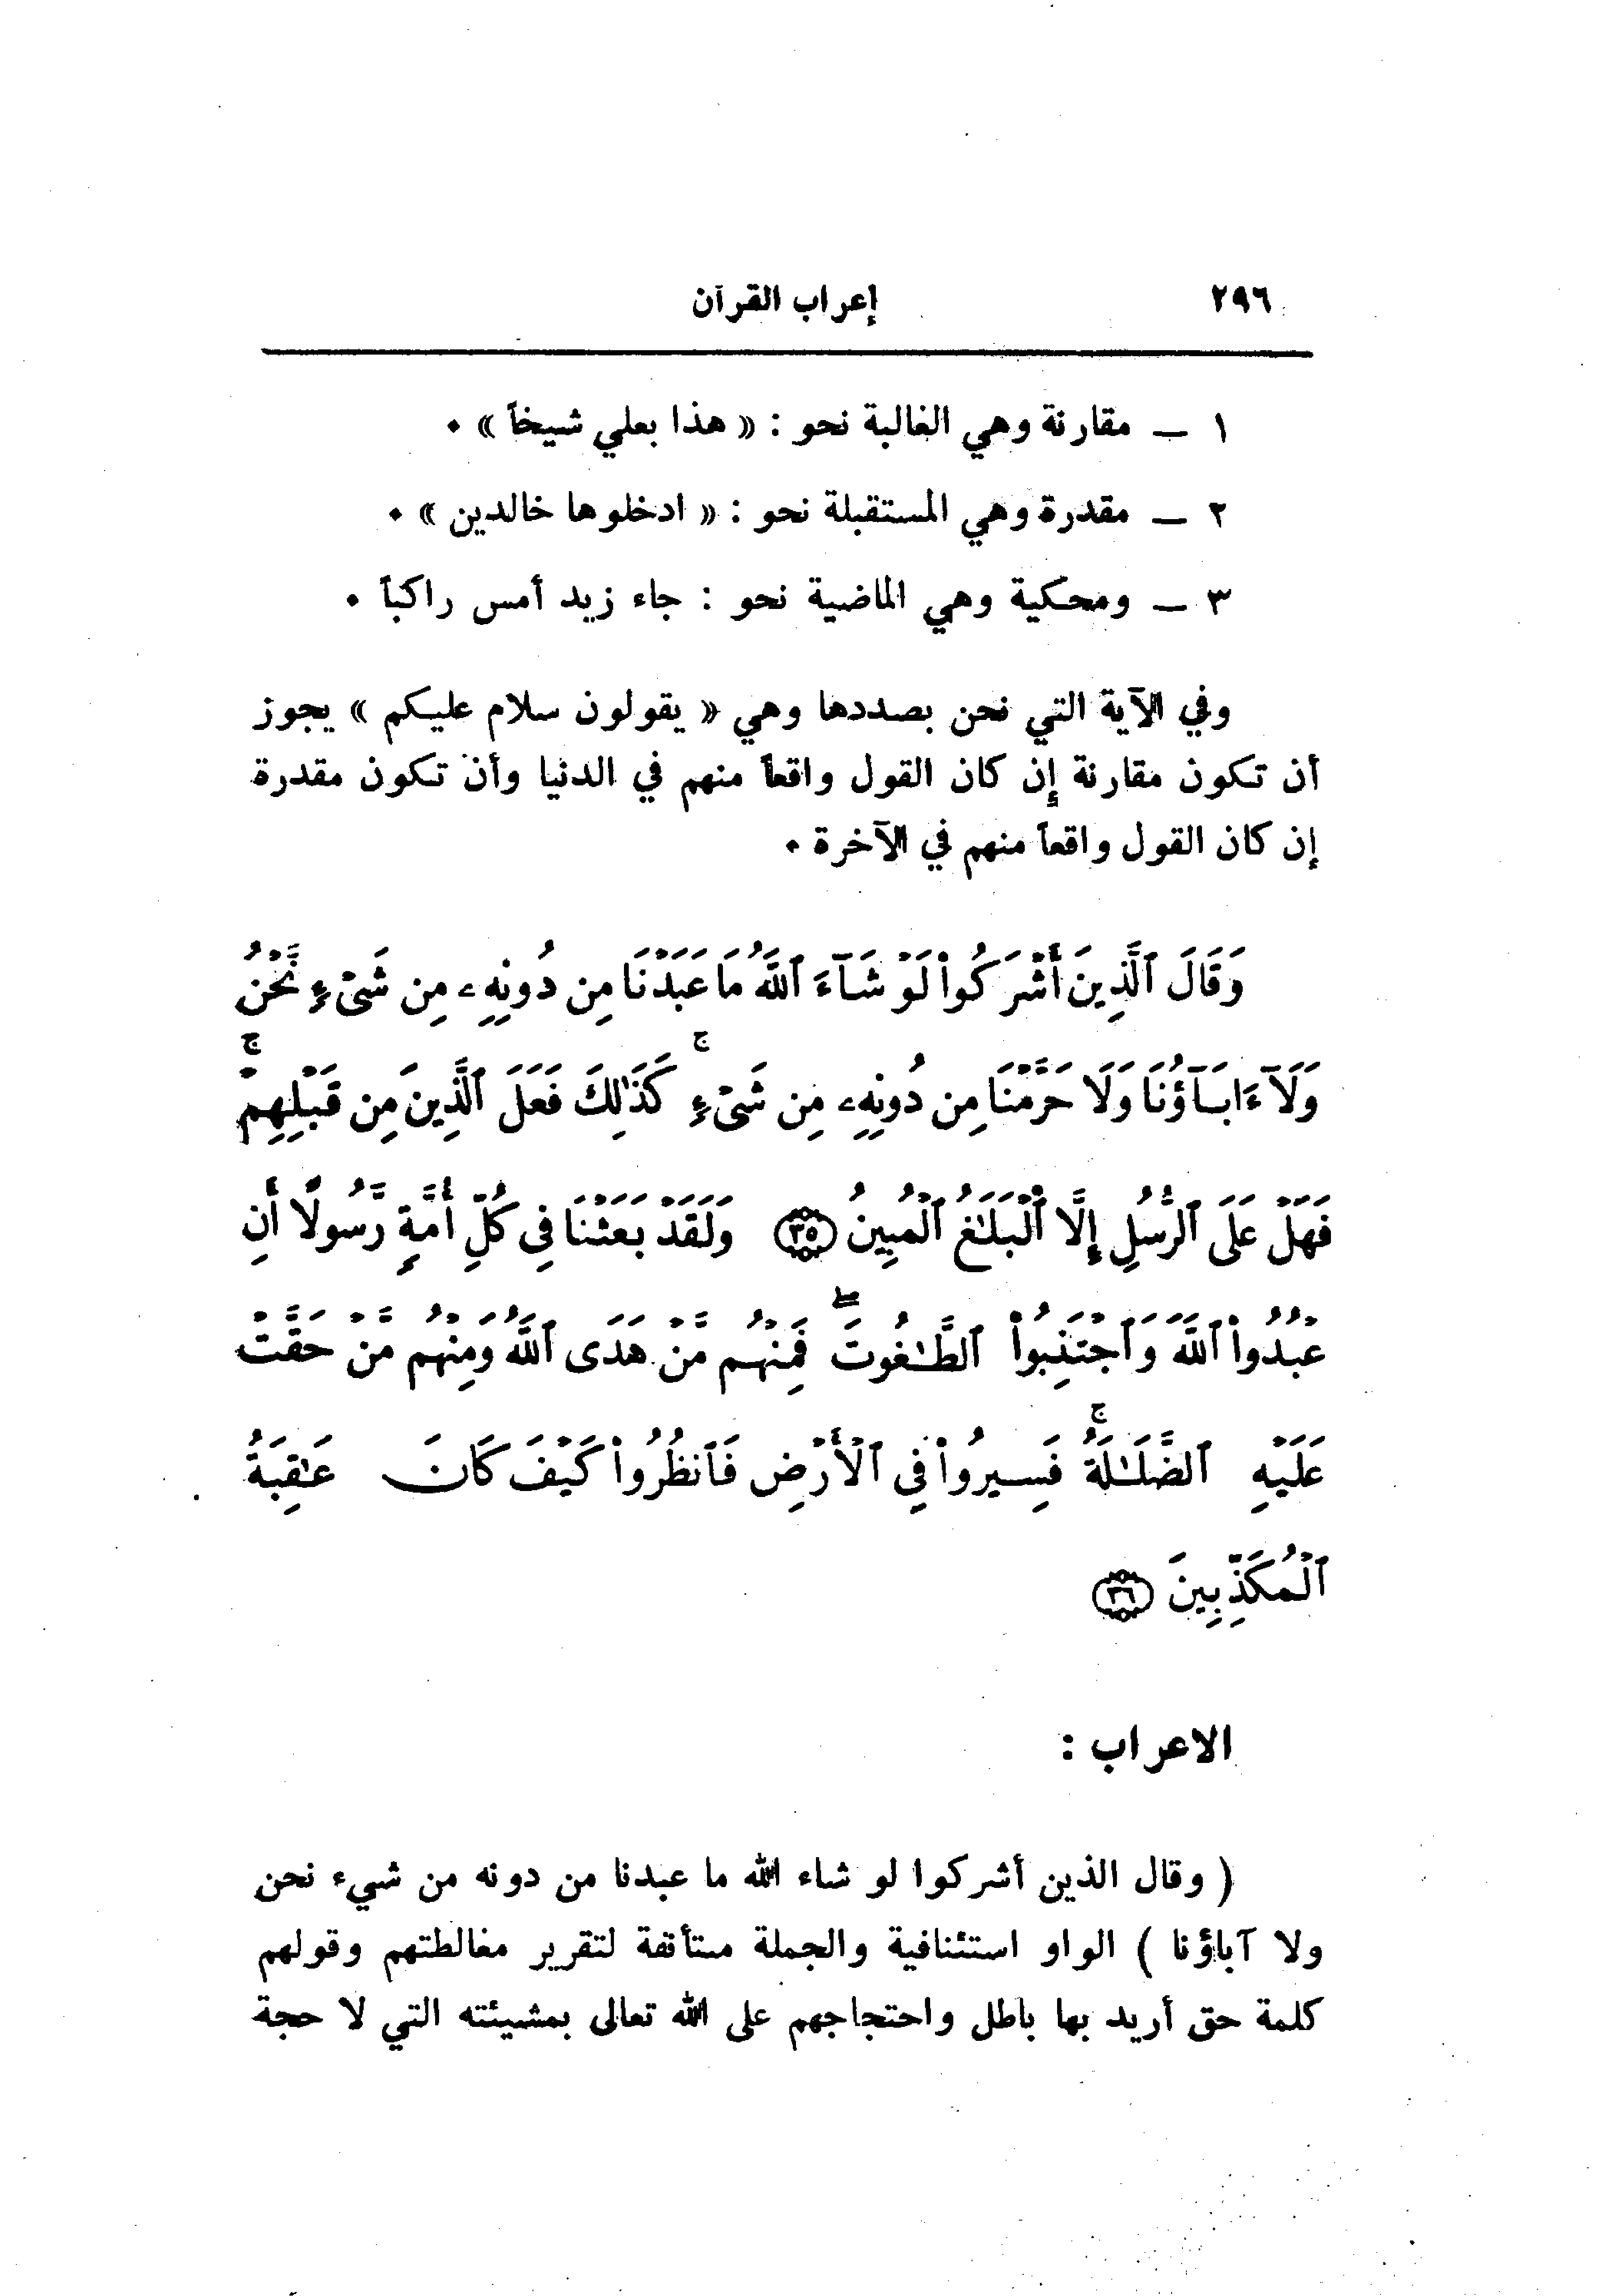 ٢٩٦ إعراب القرآن
١ – مقارنة وهي الغالبة نحو : « هذا بعلي شيخاً » ٠
٢ – مقدرة وهي المستقبلة نحو : « ادخلوها خالدين » ٠
٣ – ومحكية وهي الماضية نحو : جاء زيد أمس راكباً ٠
وفي الآية التي نحن بصددها وهي « يقولون سلام عليكم » يجوز
أن تكون مقارنة إن كان القول واقعاً منهم في الدنيا وأن تكون مقدرة
إن كان القول واقعاً منهم في الآخرة ٠
وَقَالَ ٱلَّذِينَ أَشْرَكُوا۟ لَوْ شَآءَ ٱللَّهُ مَا عَبَدْنَا مِن دُونِهِۦ مِن شَىْءٍ نَّحْنُ
وَلَآ ءَابَآؤُنَا وَلَا حَرَّمْنَا مِن دُونِهِۦ مِن شَىْءٍ ۚ كَذَٰلِكَ فَعَلَ ٱلَّذِينَ مِن قَبْلِهِمْ ۚ
فَهَلْ عَلَى ٱلرُّسُلِ إِلَّا ٱلْبَلَٰغُ ٱلْمُبِينُ ﴿٣٥﴾ وَلَقَدْ بَعَثْنَا فِى كُلِّ أُمَّةٍ رَّسُولًا أَنِ
ٱعْبُدُوا۟ ٱللَّهَ وَٱجْتَنِبُوا۟ ٱلطَّٰغُوتَ ۖ فَمِنْهُم مَّنْ هَدَى ٱللَّهُ وَمِنْهُم مَّنْ حَقَّتْ
عَلَيْهِ ٱلضَّلَٰلَةُ ۚ فَسِيرُوا۟ فِى ٱلْأَرْضِ فَٱنظُرُوا۟ كَيْفَ كَانَ عَٰقِبَةُ
ٱلْمُكَذِّبِينَ ﴿٣٦﴾
الاعراب :
( وقال الذين أشركوا لو شاء الله ما عبدنا من دونه من شيء نحن
ولا آباؤنا ) الواو استئنافية والجملة مستأنفة لتقرير مغالطتهم وقولهم
كلمة حق أريد بها باطل واحتجاجهم على الله تعالى بمشيئته التي لا حجة